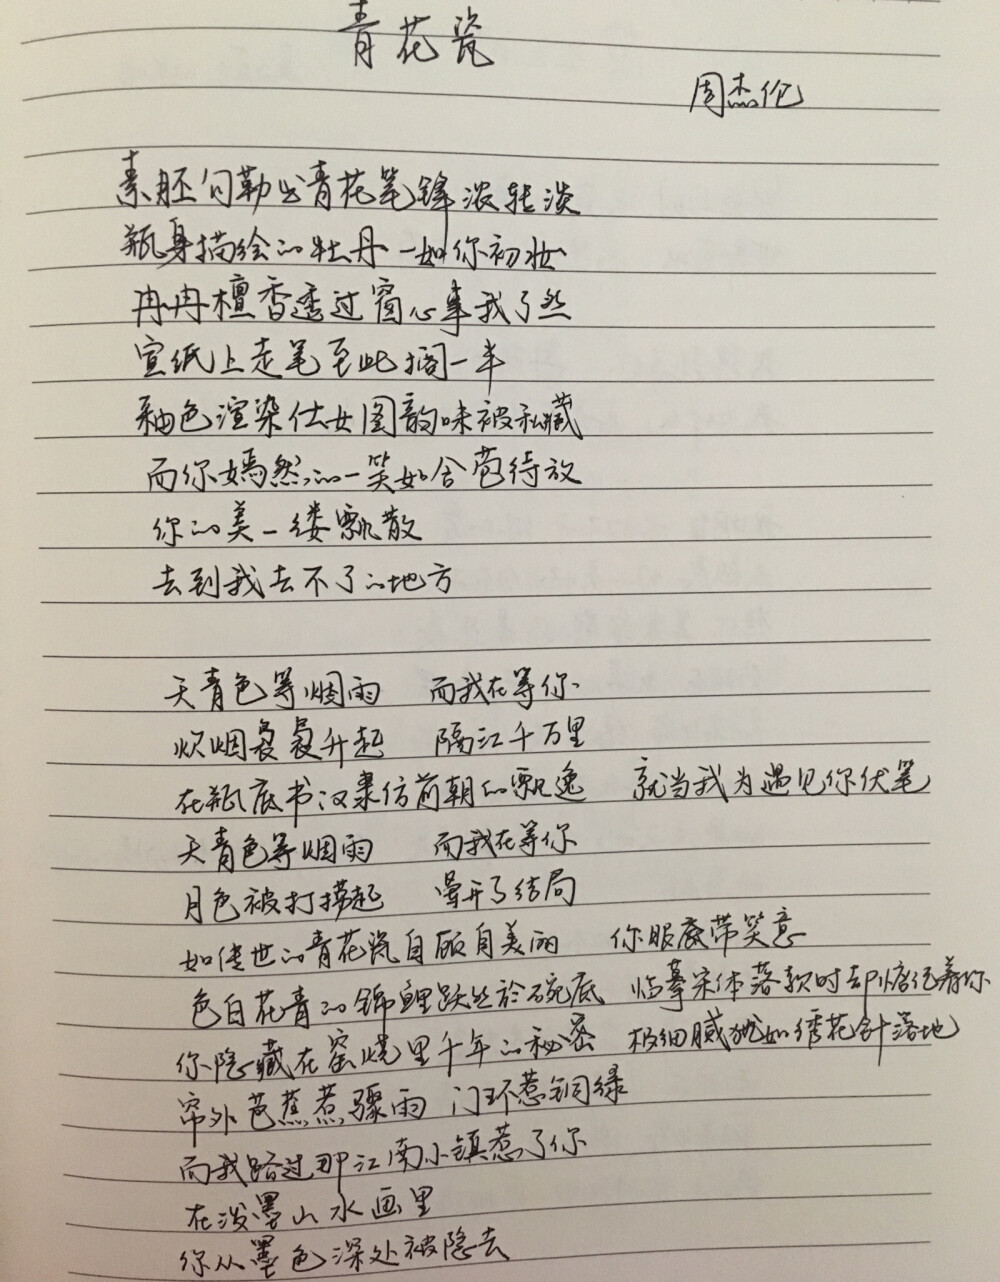 青花瓷
周杰伦
素胚勾勒出青花笔锋浓转淡
瓶身描绘的牡丹一如你初妆
冉冉檀香透过窗心事我了然
宣纸上走笔至此搁一半
釉色渲染仕女图韵味被私藏
而你嫣然的一笑如含苞待放
你的美一缕飘散
去到我去不了的地方
天青色等烟雨 而我在等你
炊烟袅袅升起 隔江千万里
在瓶底书汉隶仿前朝的飘逸 就当我为遇见你伏笔
天青色等烟雨 而我在等你
月色被打捞起 晕开了结局
如传世的青花瓷自顾自美丽 你眼底带笑意
色白花青的锦鲤跃然於碗底 临摹宋体落款时却惦记着你
你隐藏在窑烧里千年的秘密 极细腻犹如绣花针落地
帘外芭蕉惹骤雨 门环惹铜绿
而我路过那江南小镇惹了你
在泼墨山水画里
你从墨色深处被隐去